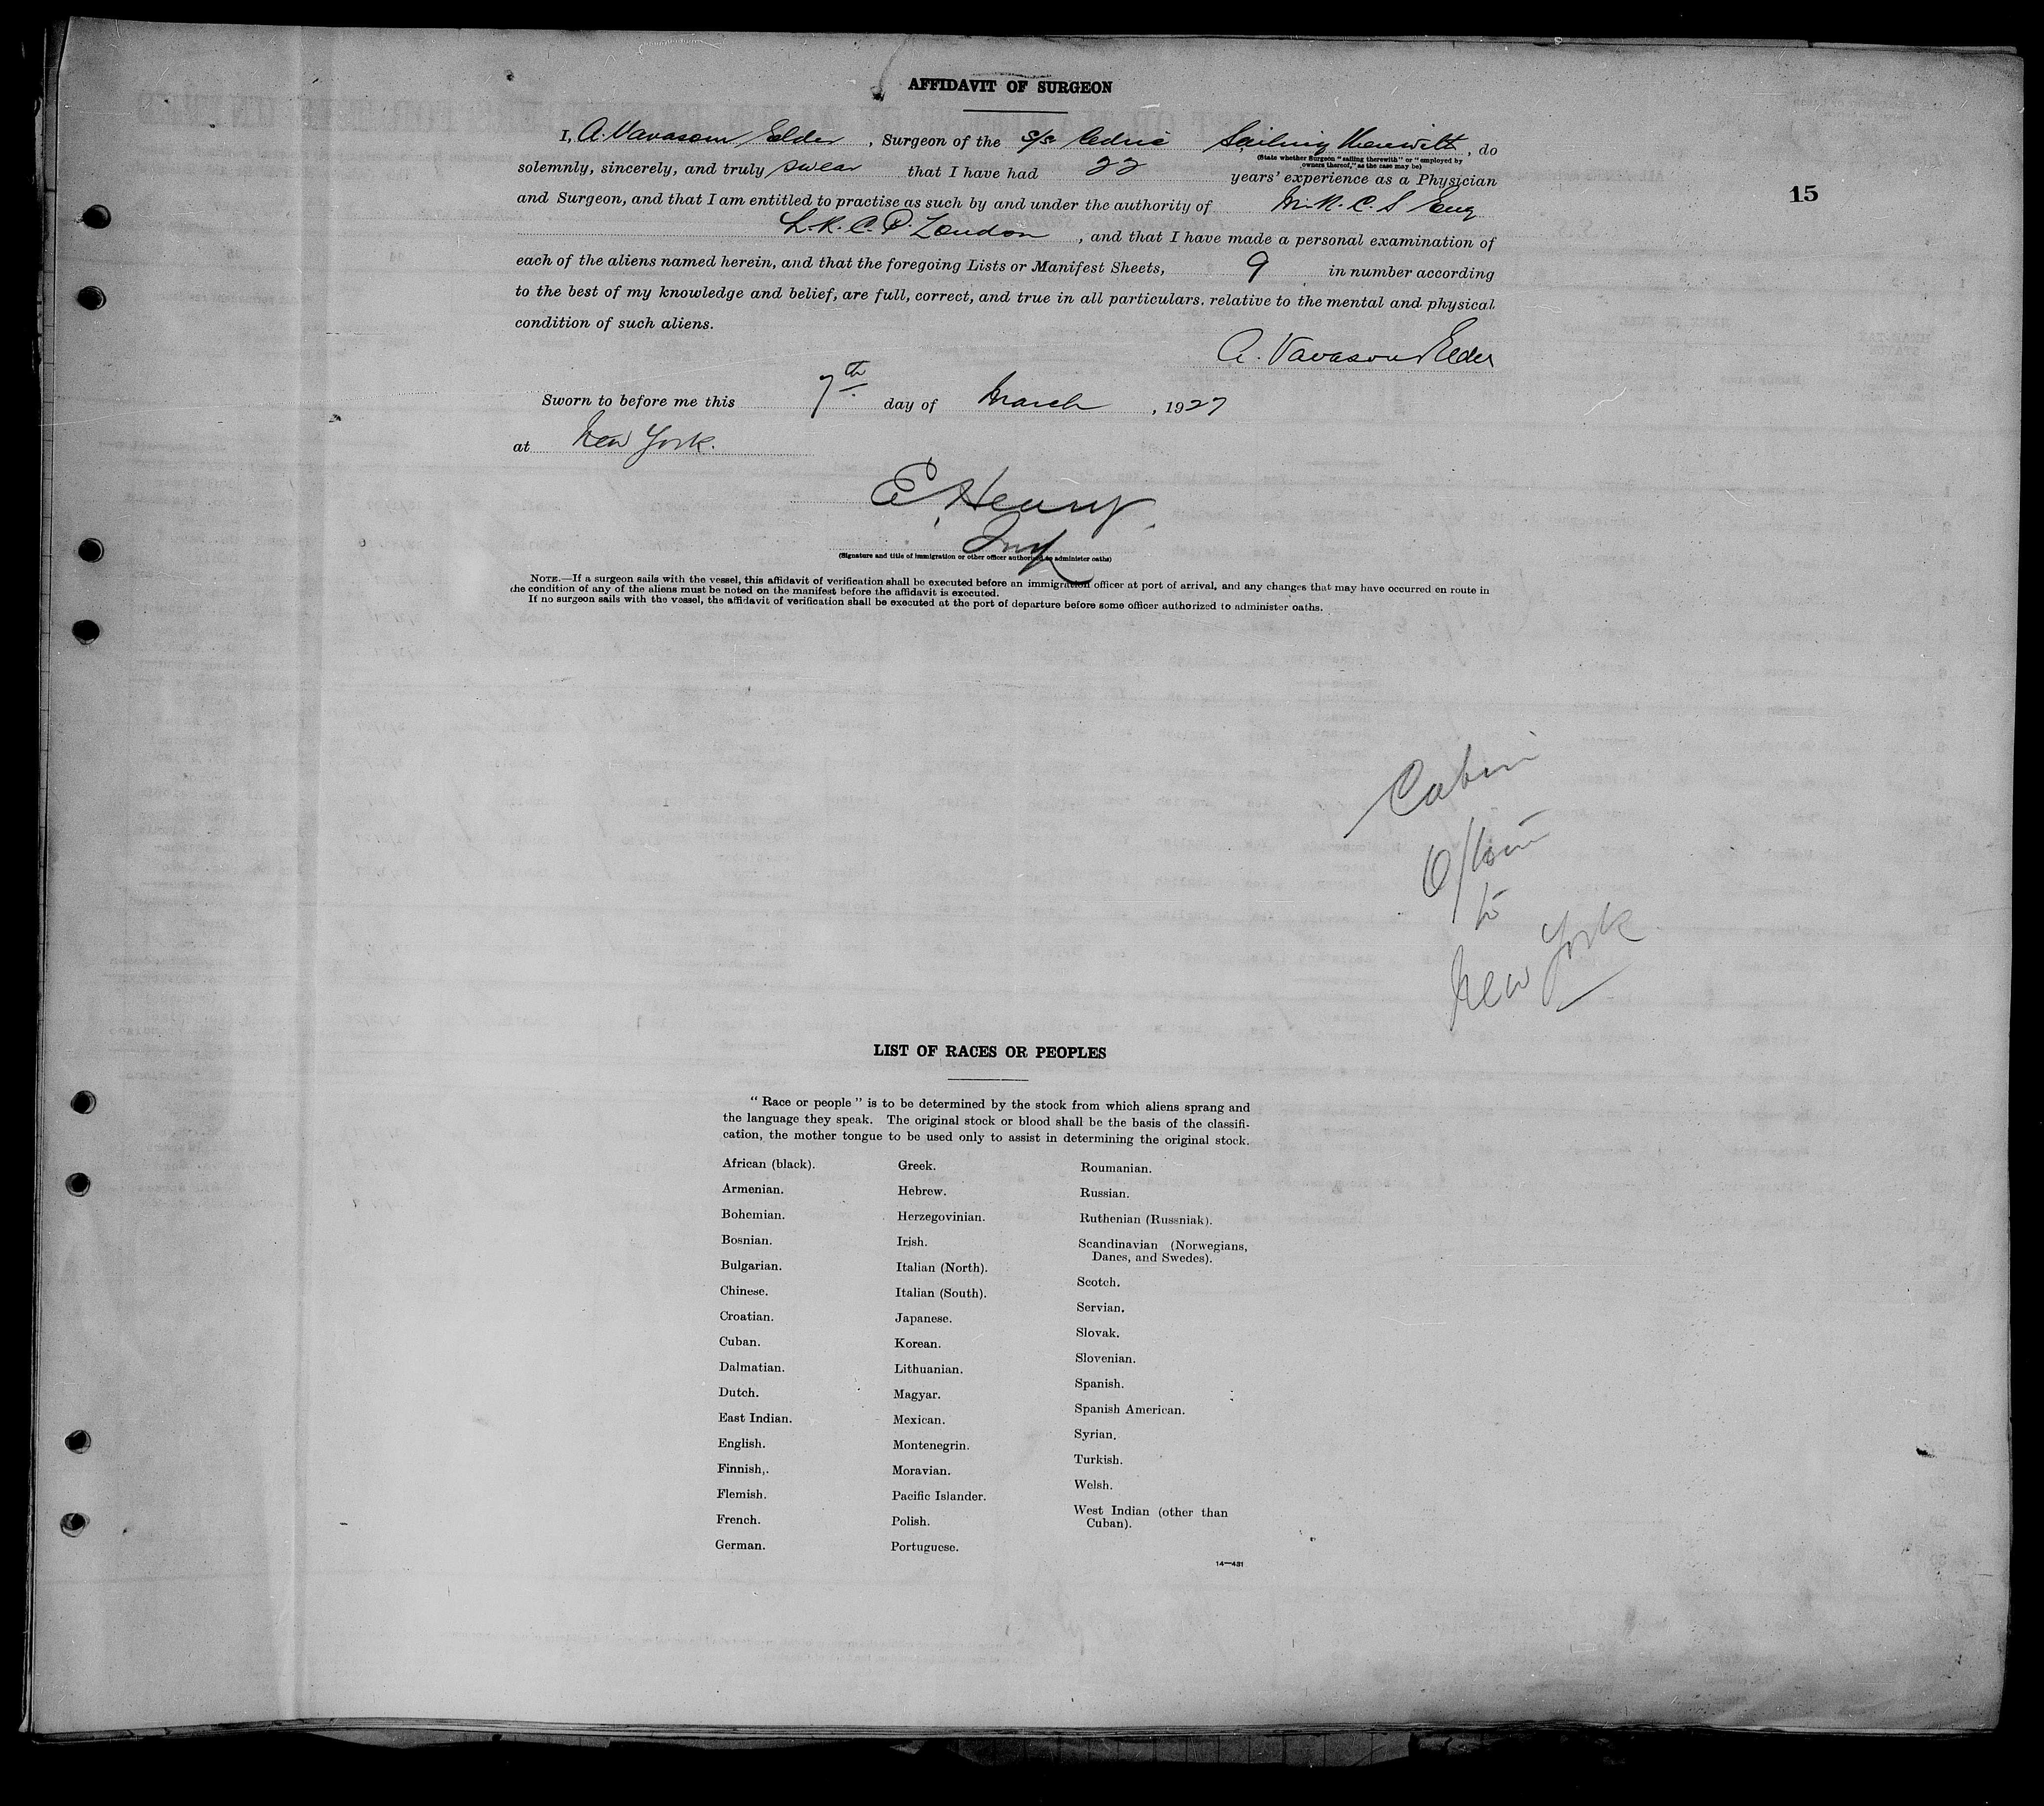 AFFIDAVIT OF SURGEON
15
I, A. Vavasour Elder, Surgeon of the S/S Cedric Sailing Therewith, do
(State whether Surgeon "sailing therewith" or "employed by
owners thereof," as the case may be)
solemnly, sincerely, and truly swear that I have had 22 years' experience as a Physician
and Surgeon, and that I am entitled to practise as such by and under the authority of M.R.C.S Eng
L.R.C.P. London, and that I have made a personal examination of
each of the aliens named herein, and that the foregoing Lists or Manifest Sheets, 9 in number according
to the best of my knowledge and belief, are full, correct, and true in all particulars. relative to the mental and physical
condition of such aliens.
A. Vavasour Elder
Sworn to before me this 7th day of March, 1927
at New York.
E. Henry.
(Signature and title of immigration or other officer authorized to administer oaths)
NOTE.—If a surgeon sails with the vessel, this affidavit of verification shall be executed before an immigration officer at port of arrival, and any changes that may have occurred en route in
the condition of any of the aliens must be noted on the manifest before the affidavit is executed.
If no surgeon sails with the vessel, the affidavit of verification shall be executed at the port of departure before some officer authorized to administer oaths.
Cabin
Q/town
to
New York
LIST OF RACES OR PEOPLES
"Race or people" is to be determined by the stock from which aliens sprang and
the language they speak. The original stock or blood shall be the basis of the classifi-
cation, the mother tongue to be used only to assist in determining the original stock.
African (black).
Armenian.
Bohemian.
Bosnian.
Bulgarian.
Chinese.
Croatian.
Cuban.
Dalmatian.
Dutch.
East Indian.
English.
Finnish,.
Flemish.
French.
German.
Greek.
Hebrew.
Herzegovinian.
Irish.
Italian (North).
Italian (South).
Japanese.
Korean.
Lithuanian.
Magyar.
Mexican.
Montenegrin.
Moravian.
Pacific Islander.
Polish.
Portuguese.
Roumanian.
Russian.
Ruthenian (Russniak).
Scandinavian (Norwegians,
Danes, and Swedes).
Scotch.
Servian.
Slovak.
Slovenian.
Spanish.
Spanish American.
Syrian.
Turkish.
Welsh.
West Indian (other than
Cuban).
14—431